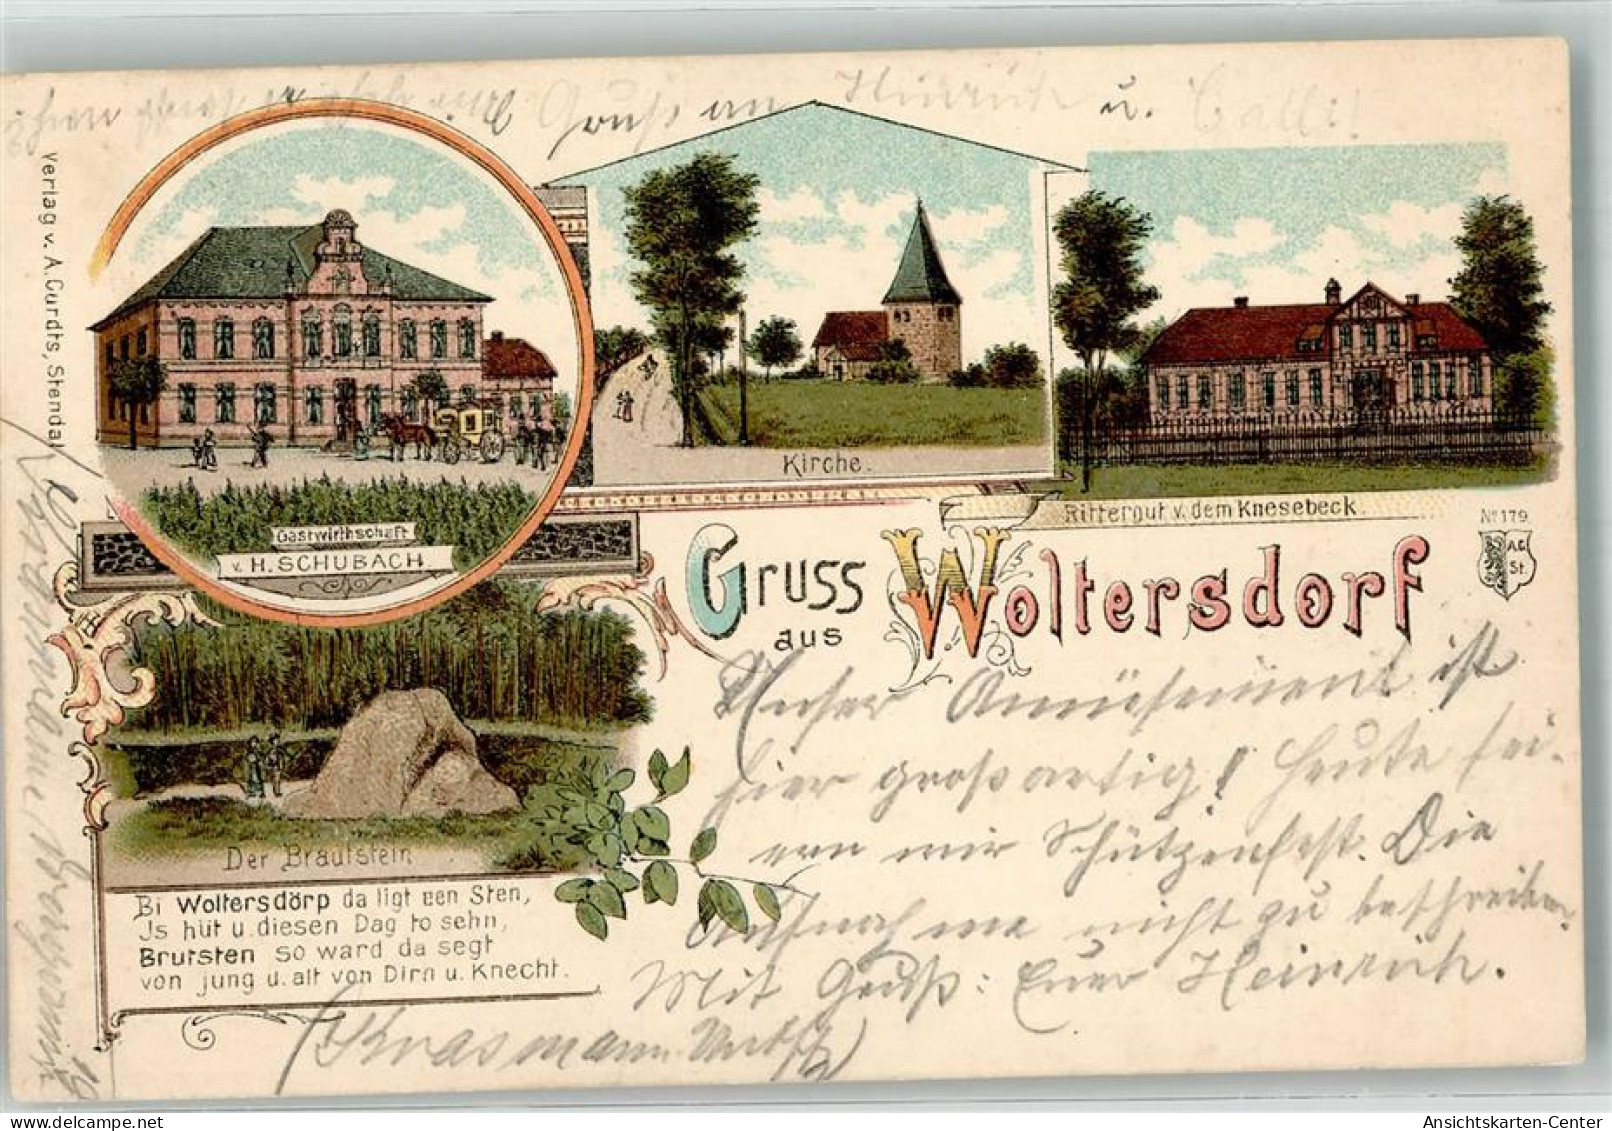 Gruß an Heinrich u.
Verlag v. A. Curdts, Stendal
Gastwirthschaft
v. H. SCHUBACH
Kirche.
Rittergut v. dem Knesebeck.
No 179.
A.C.
St.
Gruss
aus
Woltersdorf
Der Brautstein
Bi Woltersdörp da ligt een Sten,
Js hüt u. diesen Dag to sehn,
Brutsten so ward da segt
von jung u. alt von Dirn u. Knecht.
Unser Amüsement ist
hier großartig! Heute fei-
ern wir Schützenfest. Die
Aufnahme nicht zu beschreiben.
Mit Gruß: Euer Heinrich.
Ansichtskarten-Center